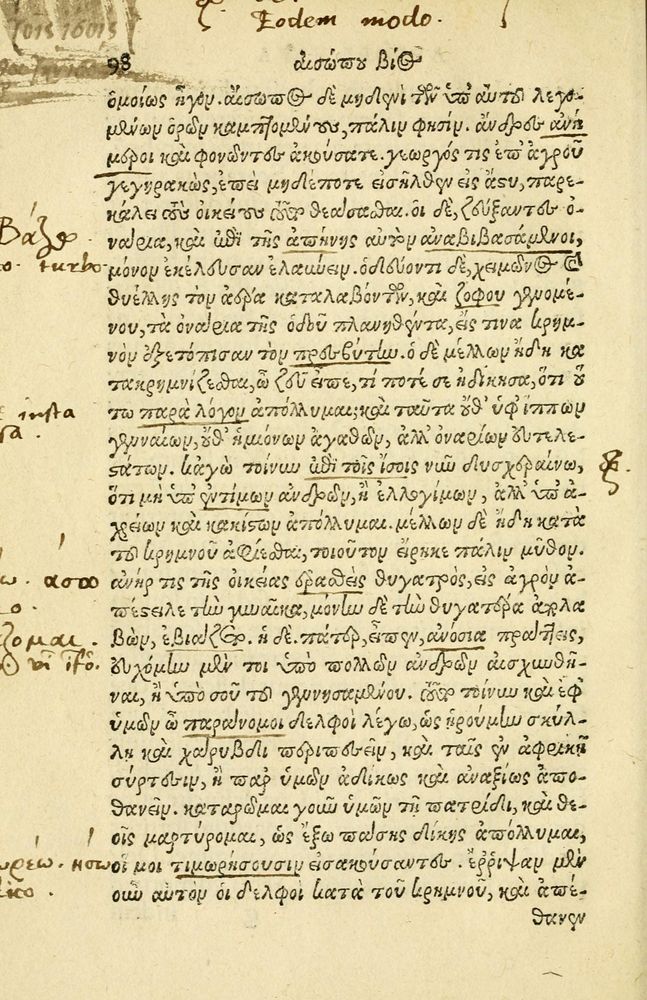 Eodem modo.
98 αἰσώπου βίος
ὁμοίως ἦγον. αἴσωπος δὲ μηδενὶ τῶν ὑπ' αὐτοῦ λεγο-
μένων ὁρῶν καμπτομένους, πάλιν φησίν. ἄνδρες ἀνή
μεροι καὶ φονῶντες ἀκούσατε. γεωργός τις ἐπ' ἀγροῦ
γεγηρακὼς, ἐπεὶ μηδέποτε εἰσῆλθεν εἰς ἄστυ, παρε-
κάλει τοὺς οἰκείους τοῦτο θεάσασθαι. οἱ δὲ, ζεύξαντες ὀ-
νάρια, καὶ ἐπὶ τῆς ἀπήνης αὐτὸν ἀναβιβασάμενοι,
μόνον ἐκέλευσαν ἐλαύνειν. ὁδεύοντι δὲ, χειμῶνος καὶ
θυέλλης τὸν ἀέρα καταλαβόντων, καὶ ζόφου γενομέ-
νου, τὰ ὀνάρια τῆς ὁδοῦ πλανηθέντα, εἴς τινα κρημ-
νὸν ἐξετόπισαν τὸν πρεσβύτην. ὁ δὲ μέλλων ἤδη κα
τακρημνίζεσθαι, ὦ ζεῦ εἶπε, τί ποτέ σε ἠδίκησα, ὅτι οὕ
τω παρὰ λόγον ἀπόλλυμαι; καὶ ταῦτα οὔθ' ὑφ' ἵππων
γενναίων, οὔθ' ἡμιόνων ἀγαθῶν, ἀλλ' ὀναρίων εὐτελε-
στάτων. κἀγὼ τοίνυν ἐπὶ τοῖς ἴσοις νῦν δυσχεραίνω,
ὅτι μὴ ὑπ' ἐντίμων ἀνδρῶν, ἢ ἐλλογίμων, ἀλλ' ὑπ' ἀ-
χρείων καὶ κακίστων ἀπόλλυμαι. μέλλων δὲ ἤδη κατὰ
τοῦ κρημνοῦ ἀφίεσθαι, τοιοῦτον εἴρηκε πάλιν μῦθον.
ἀνήρ τις τῆς οἰκείας ἐρασθεὶς θυγατρὸς, εἰς ἀγρὸν ἀ-
πέστειλε τὴν γυναῖκα, μόνην δὲ τὴν θυγατέρα ἀπολα
βὼν, ἐβιάζετο. ἡ δὲ. πάτερ, εἶπεν, ἀνόσια πράττεις,
εὐχόμην μέν τοι ὑπὸ πολλῶν ἀνδρῶν αἰσχυνθῆ-
ναι, ἢ ὑπὸ σοῦ τοῦ γεννησαμένου. τοῦτο τοίνυν καὶ ἐφ'
ὑμῶν ὦ παράνομοι δελφοὶ λέγω, ὡς ᾑρούμην σκύλ-
λῃ καὶ χαρύβδει περιπεσεῖν, καὶ ταῖς ἐν ἀφρικῇ
σύρτεσιν, ἢ παρ' ὑμῶν ἀδίκως καὶ ἀναξίως ἀπο-
θανεῖν. καταρῶμαι γοῦν ὑμῶν τῇ πατρίδι, καὶ θε-
οῖς μαρτύρομαι, ὡς ἔξω πάσης δίκης ἀπόλλυμαι,
οἵ μοι τιμωρήσουσιν εἰσακούσαντες. ἔρριψαν μὲν
οὖν αὐτὸν οἱ δελφοὶ κατὰ τοῦ κρημνοῦ, καὶ ἀπέ-
θανεν